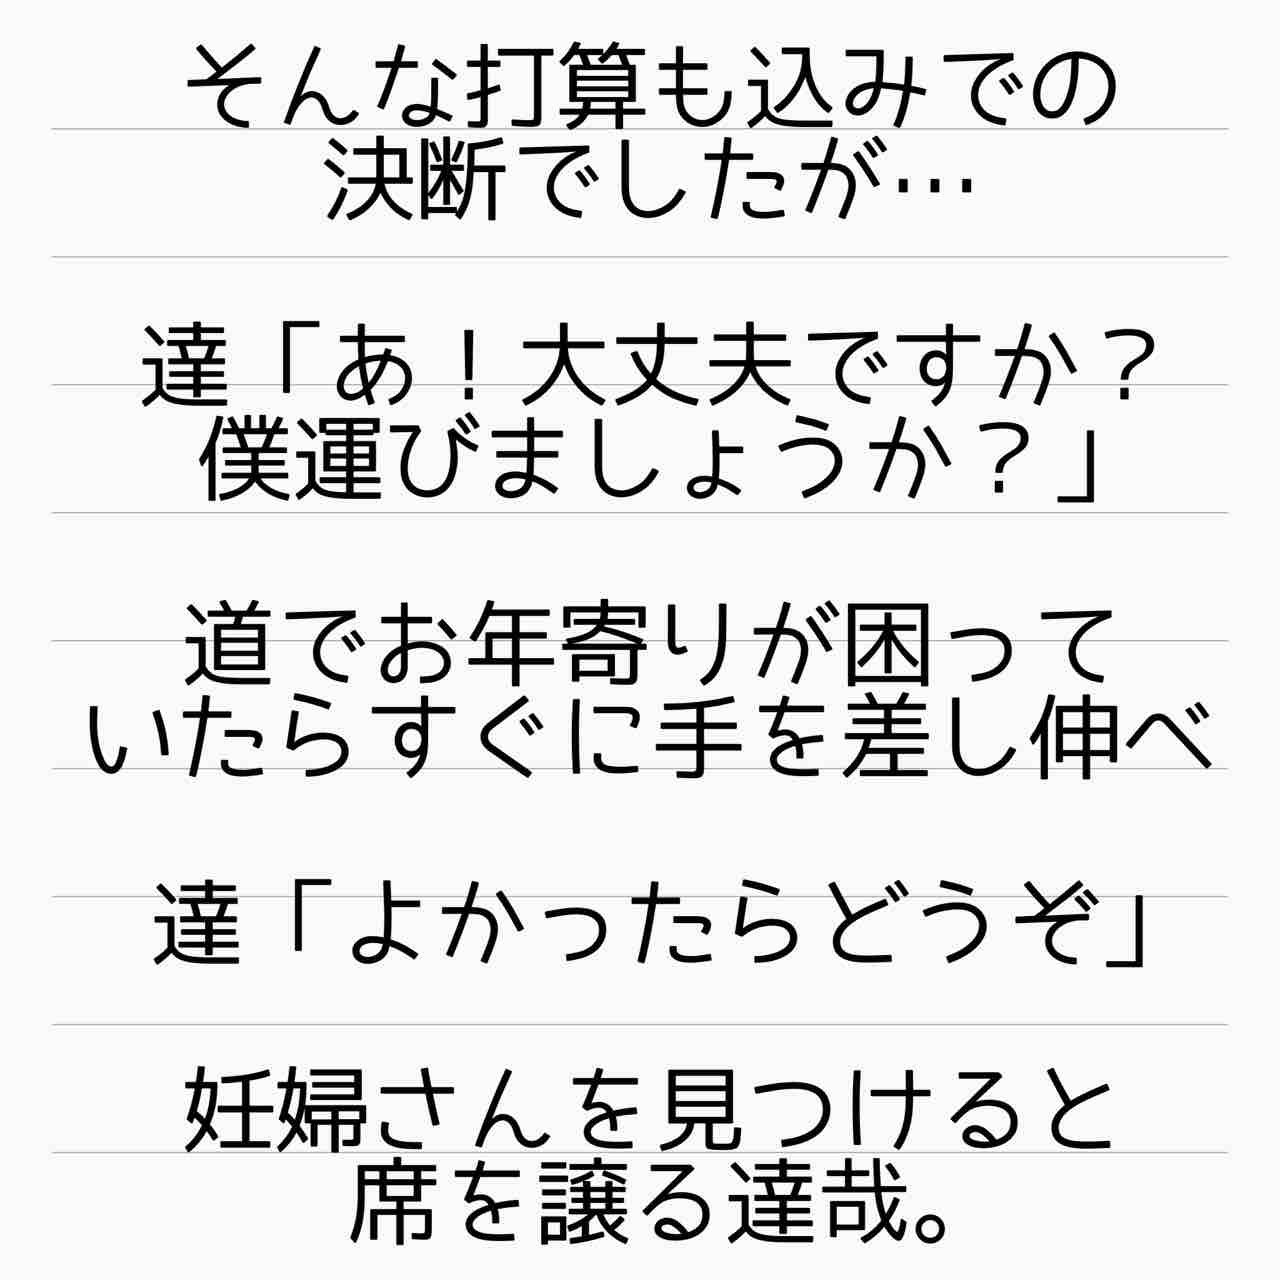 そんな打算も込みでの
決断でしたが…
達「あ！大丈夫ですか？
僕運びましょうか？」
道でお年寄りが困って
いたらすぐに手を差し伸べ
達「よかったらどうぞ」
妊婦さんを見つけると
席を譲る達哉。